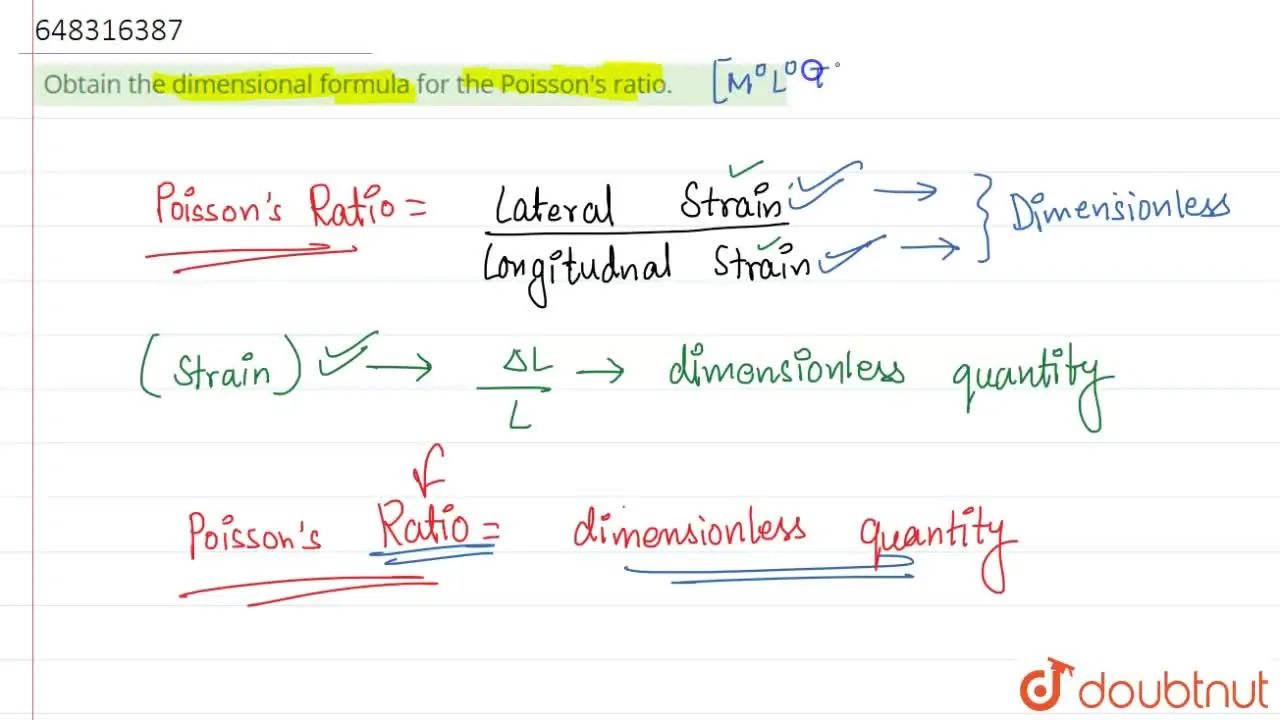 648316387
Obtain the dimensional formula for the Poisson's ratio. [M⁰L⁰T
Poisson's Ratio = Lateral Strain → } Dimensionless
Longitudnal Strain →
(Strain) → ΔL → dimensionless quantity
L
Poisson's Ratio = dimensionless quantity
doubtnut